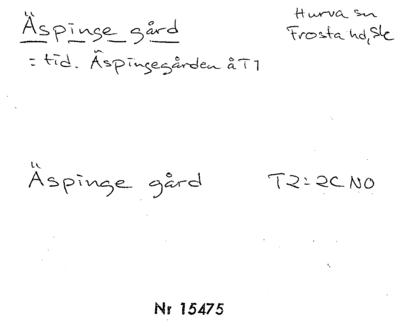 Äspinge gård
Hurva sn
Frosta hd, Sk
= tid. Äspingegården å T1
Äspinge gård T2 = 2C NO
Nr 15475